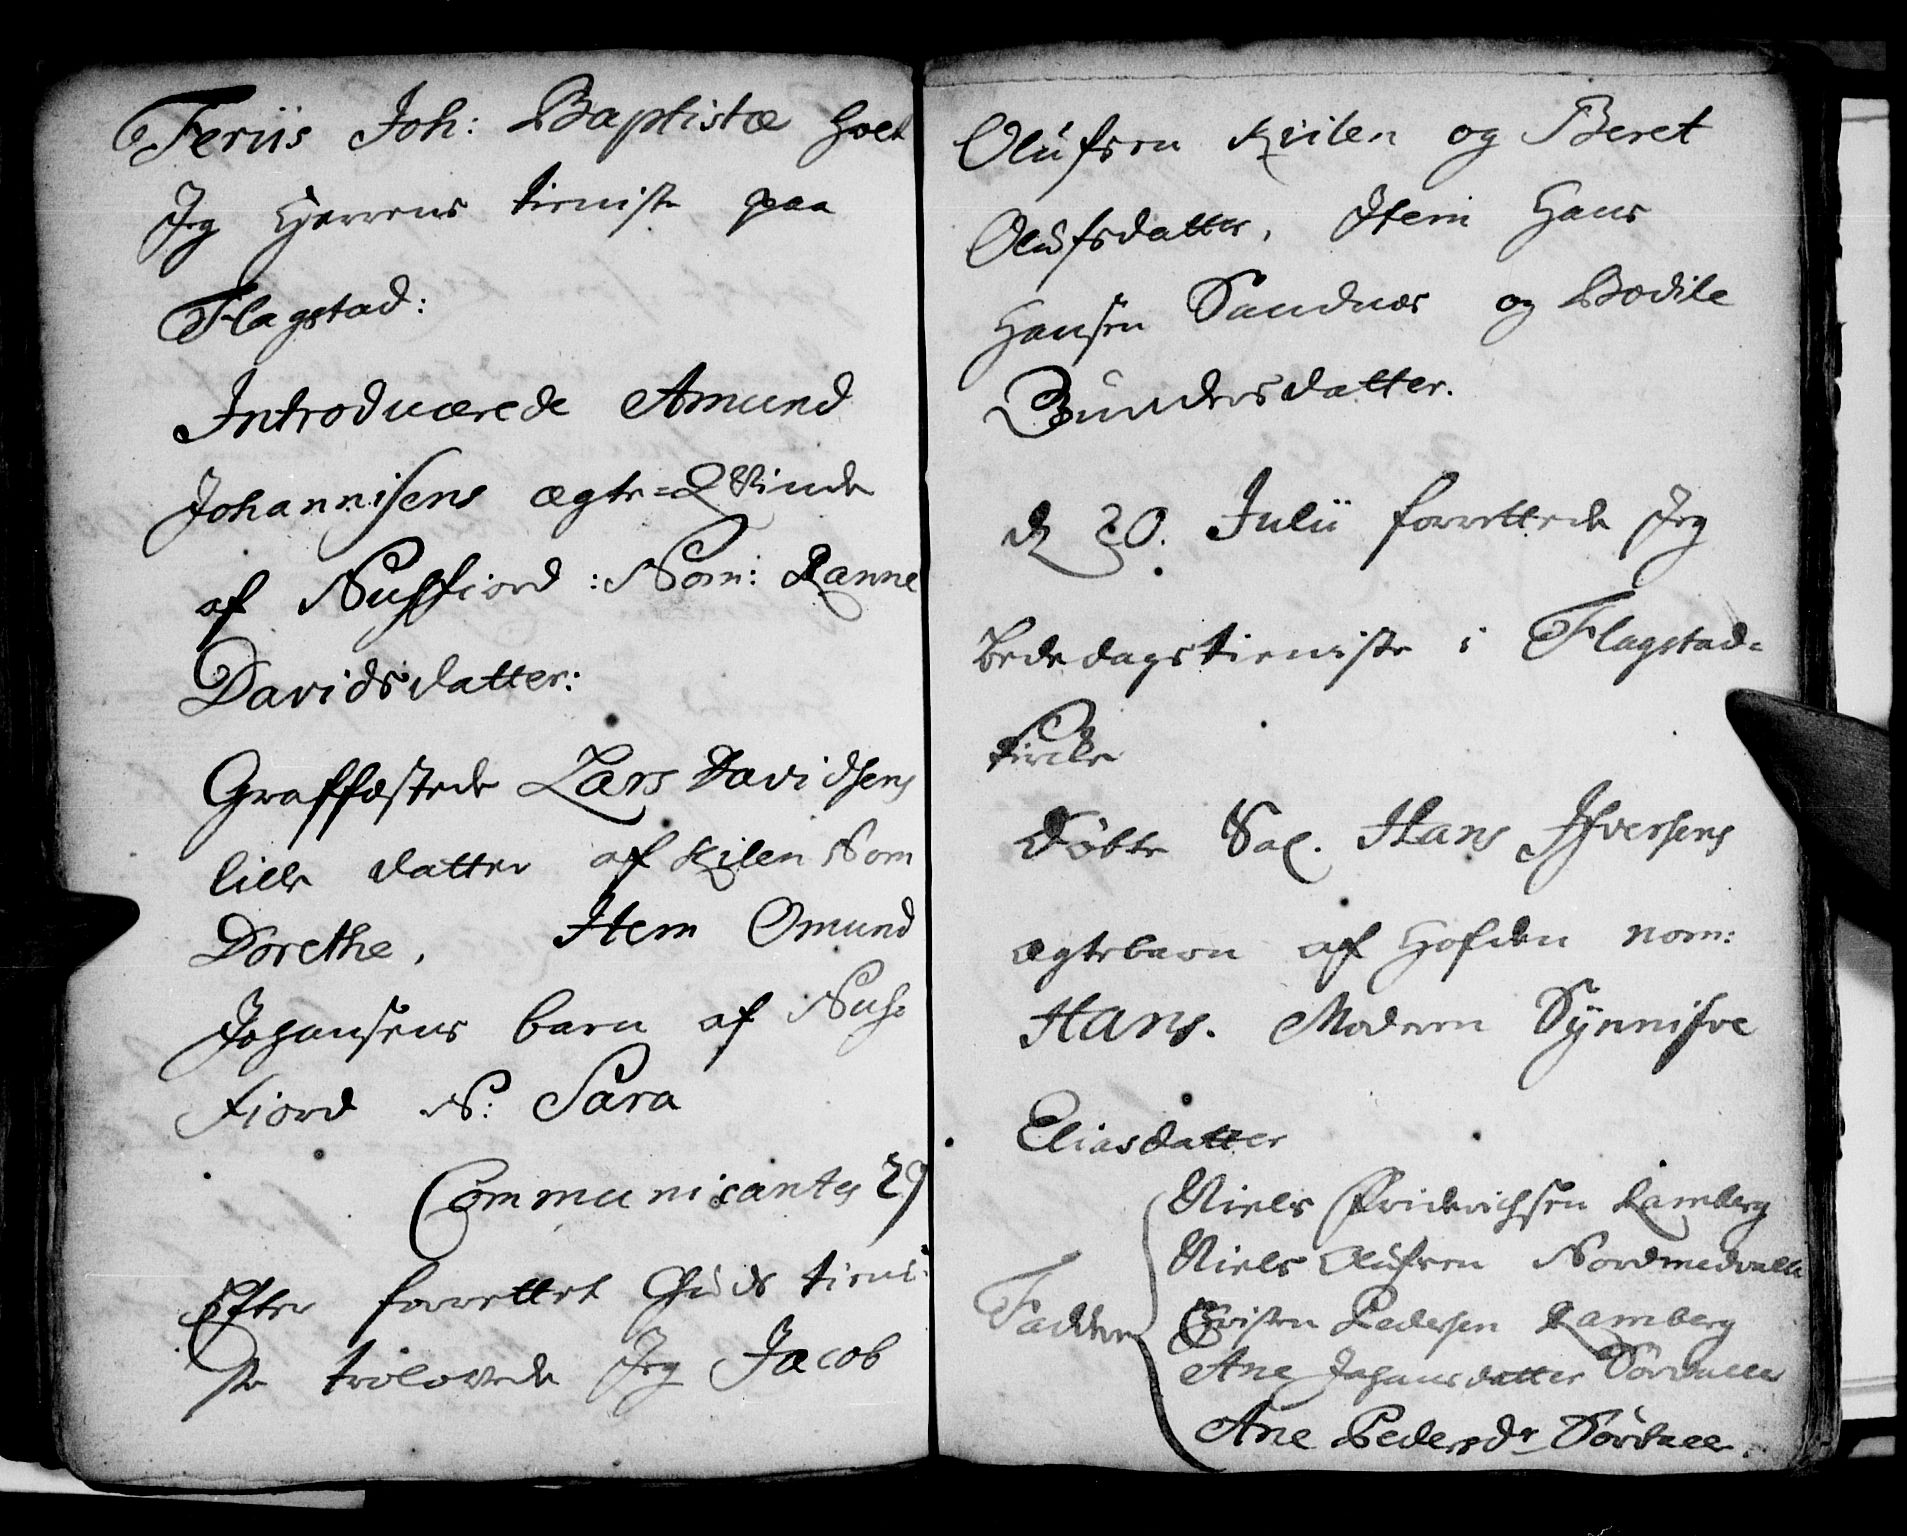 Feriis Joh: Baptistæ holt
Jeg Herrens tieniste paa
Flagstad:
Introducerede Amund
Johannisens ægte=Qvinde
af Nusfiord :Nom: Ranne
Davidsdatter:
Graffæstede Lars Davidsens
lille datter af Kilen Nom
Dorethe, Item Omund
Johansens barn af Nus=
fiord N: Sara
Communicantes 29
Efter forrettet Guds tieni=
ste trolovede Jeg Jacob
Olufsen Kvilen og Beret
Olufsdatter, Item Hans
Hansen Sandnes og Bodile
Gundersdatter.
d 20. Julii forrettede Jeg
Bededagstieniste i Flagstad=
kircke
Døbte Sal. Hans Ifversens
ægtebarn af Hofden nom:
Hans. Moderen Synnifve
Eliasdatter
Faddere
Niels Friderichsen Ramberg
Niels Olufsen Nordmedvalle
Cristen Pedersen Ramberg
Ane Johansdatter
Ane Pedersdr